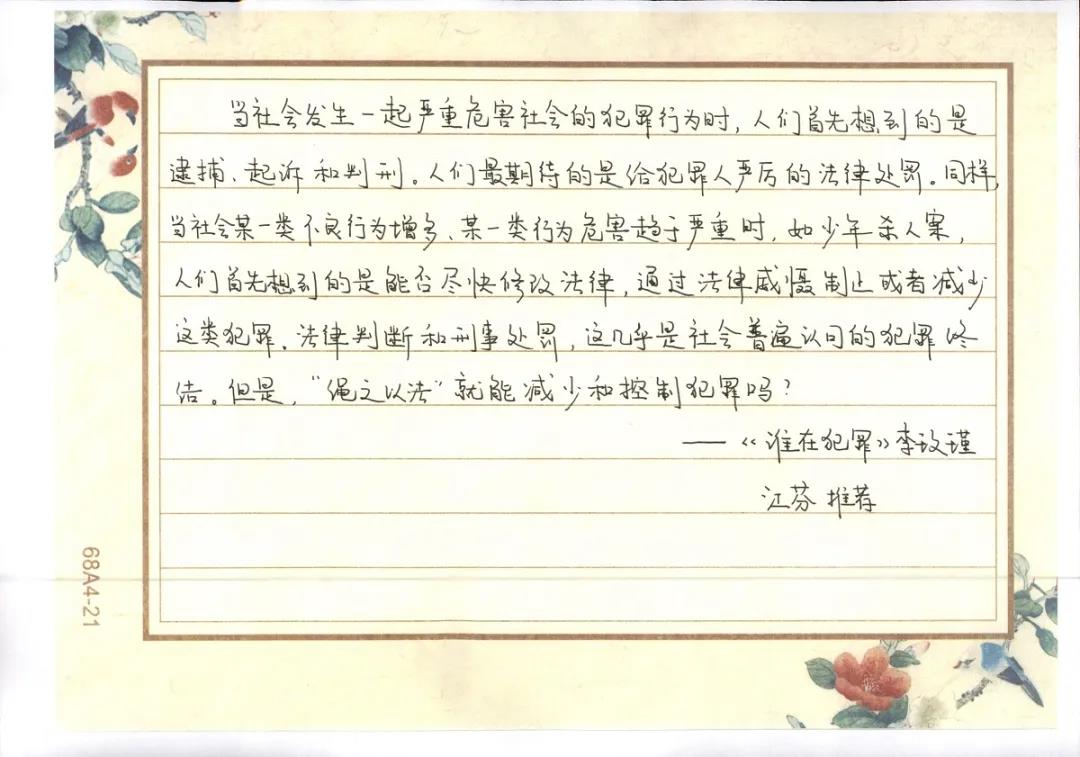 当社会发生一起严重危害社会的犯罪行为时,人们首先想到的是
逮捕、起诉和判刑。人们最期待的是给犯罪人严厉的法律处罚。同样,
当社会某一类不良行为增多、某一类行为危害趋于严重时,如少年杀人案,
人们首先想到的是能否尽快修改法律,通过法律威慑制止或者减少
这类犯罪、法律判断和刑事处罚,这几乎是社会普遍认同的犯罪终
结。但是,“绳之以法”就能减少和控制犯罪吗?
——《谁在犯罪》李玫瑾
江芬 推荐
68A4-21